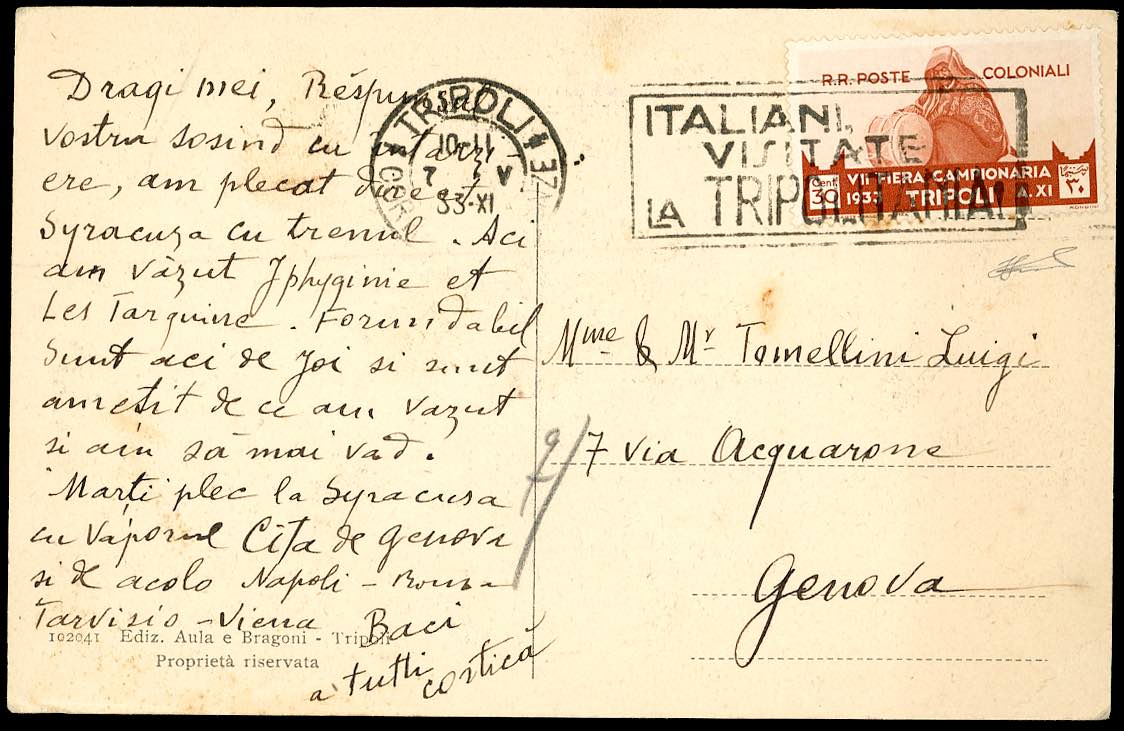 Dragi mei, Răspunsul
vostru sosind cu întarzi
ere, am plecat direct
Syracuza cu trenul. Aci
am văzut Iphyginie et
Les Tarquine. Formidabil
Sunt aci de Joi si sunt
ametit de ce am vazut
si am să mai vad.
Marti plec la Syracusa
cu vaporul Cita de Genova
si de acolo Napoli - Roma
Tarvisio - Viena Baci
a tutti
costică
102041 Ediz. Aula e Bragoni - Tripoli
Proprietà riservata
TRIPOLI
10-11
7 V
33-XI
ITALIANI,
VISITATE
LA TRIPOLITANIA!
R.R. POSTE COLONIALI
VII FIERA CAMPIONARIA
Cent. 30 1933 TRIPOLI A. XI ٣٠
Mme & Mr Tomellini Luigi
7 via Acquarone
Genova